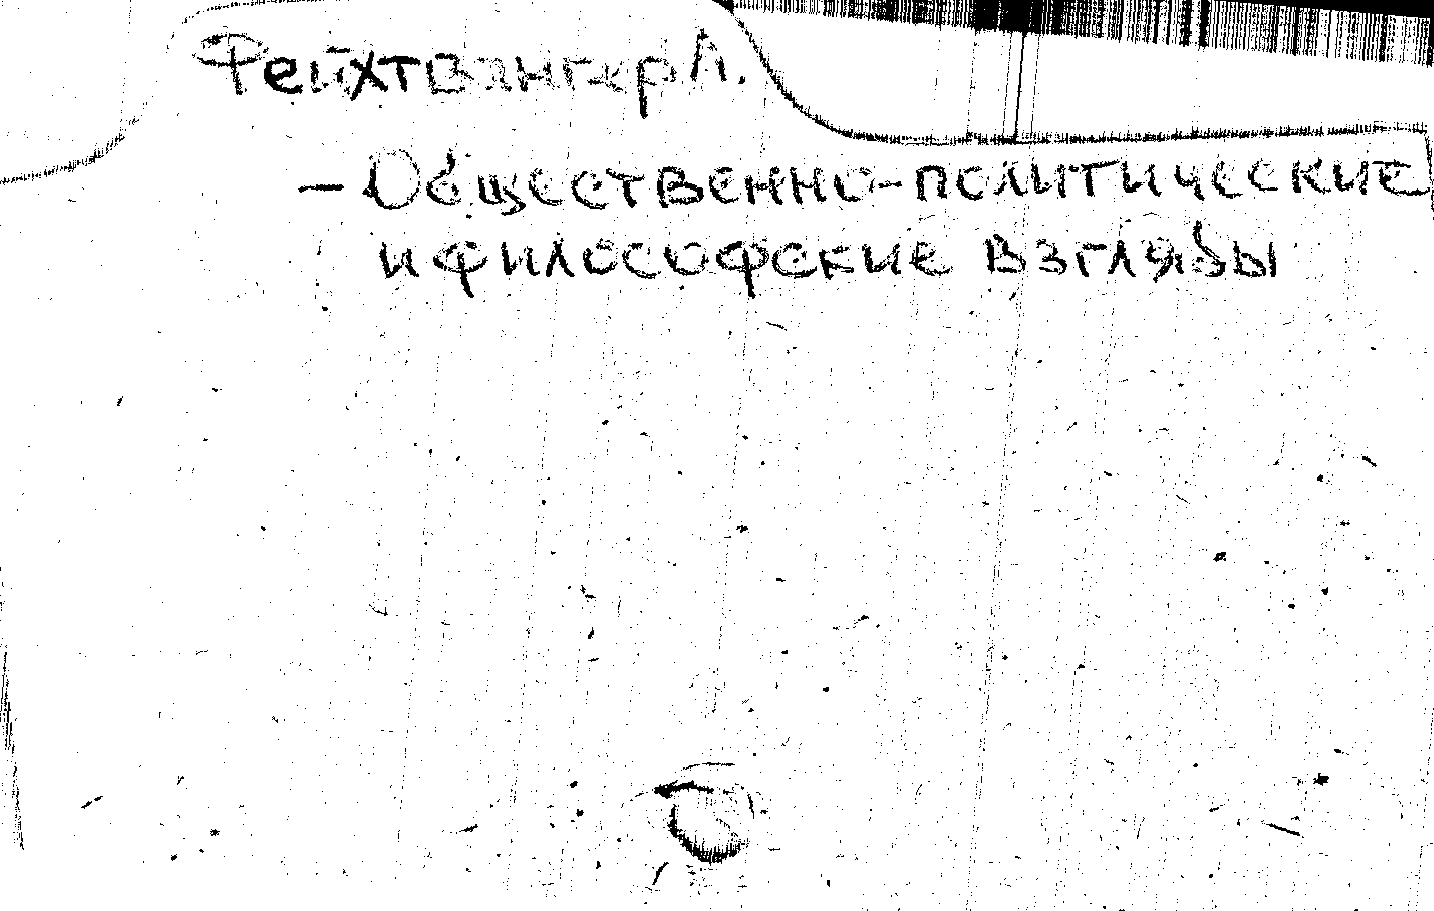 Фейхтвангер Л.
— Общественно-политические
и философские взгляды